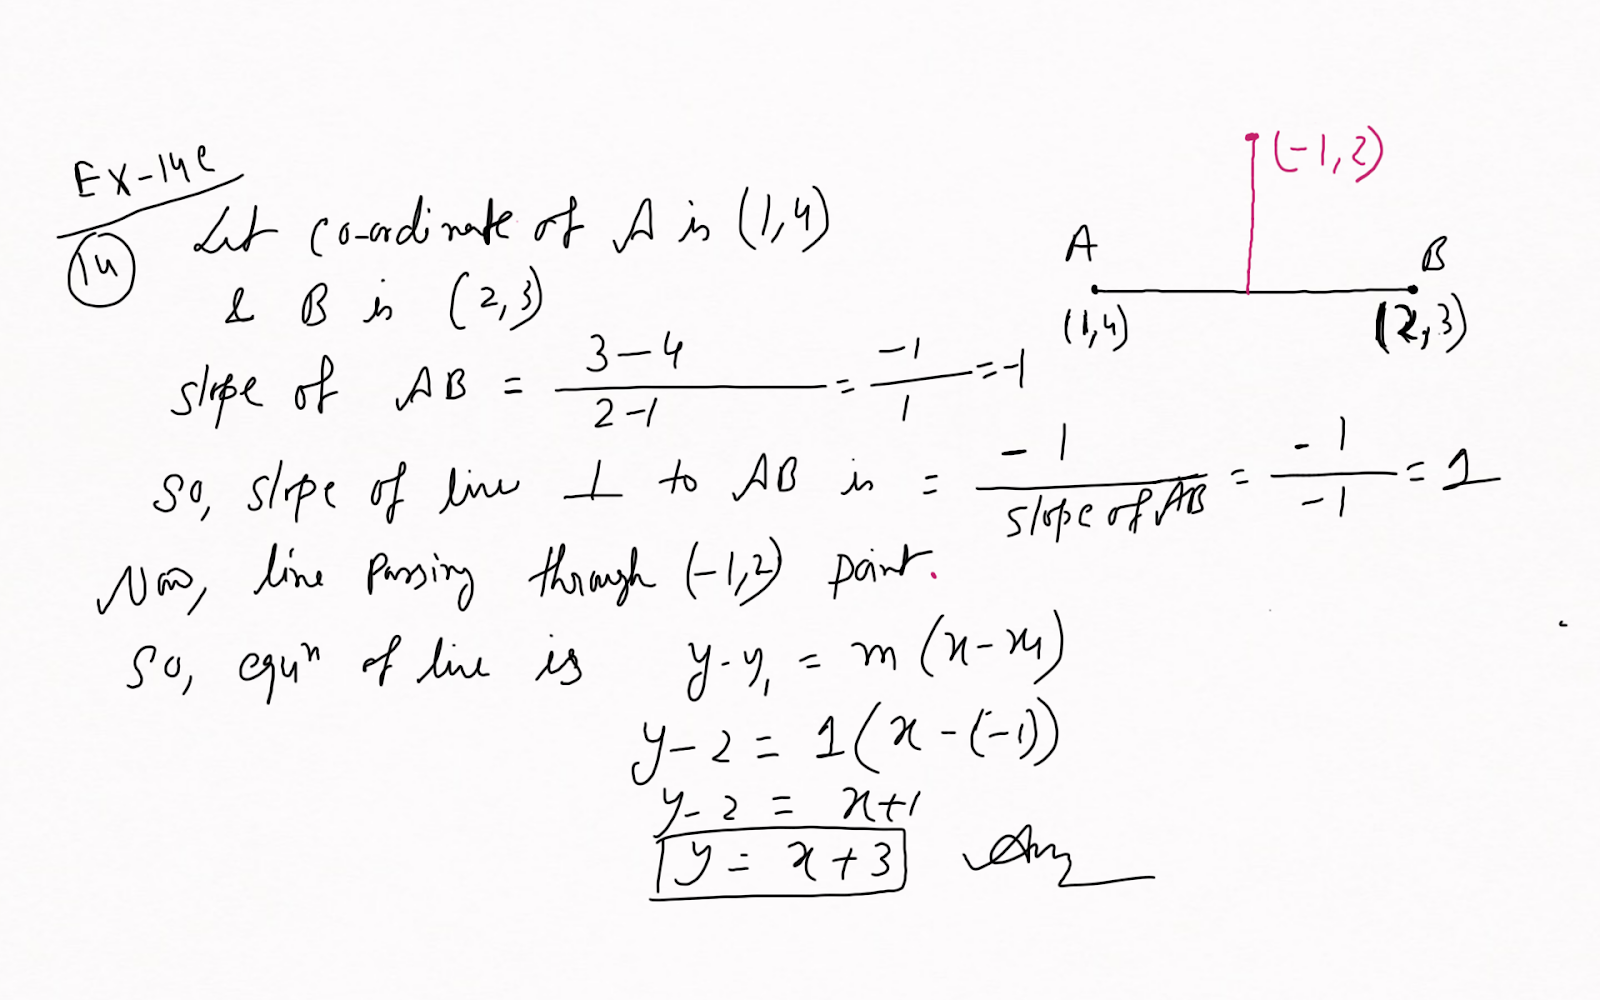 Ex-14e
14
Let co-ordinate of A is (1,4)
& B is (2,3)
slope of AB = 3-4 / 2-1 = -1 / 1 = -1
So, slope of line ⊥ to AB is = -1 / slope of AB = -1 / -1 = 1
Now, line passing through (-1,2) point.
So, equⁿ of line is y-y₁ = m(x-x₁)
y-2 = 1(x-(-1))
y-2 = x+1
y = x+3 Ans
(-1,2)
A B
(1,4) (2,3)